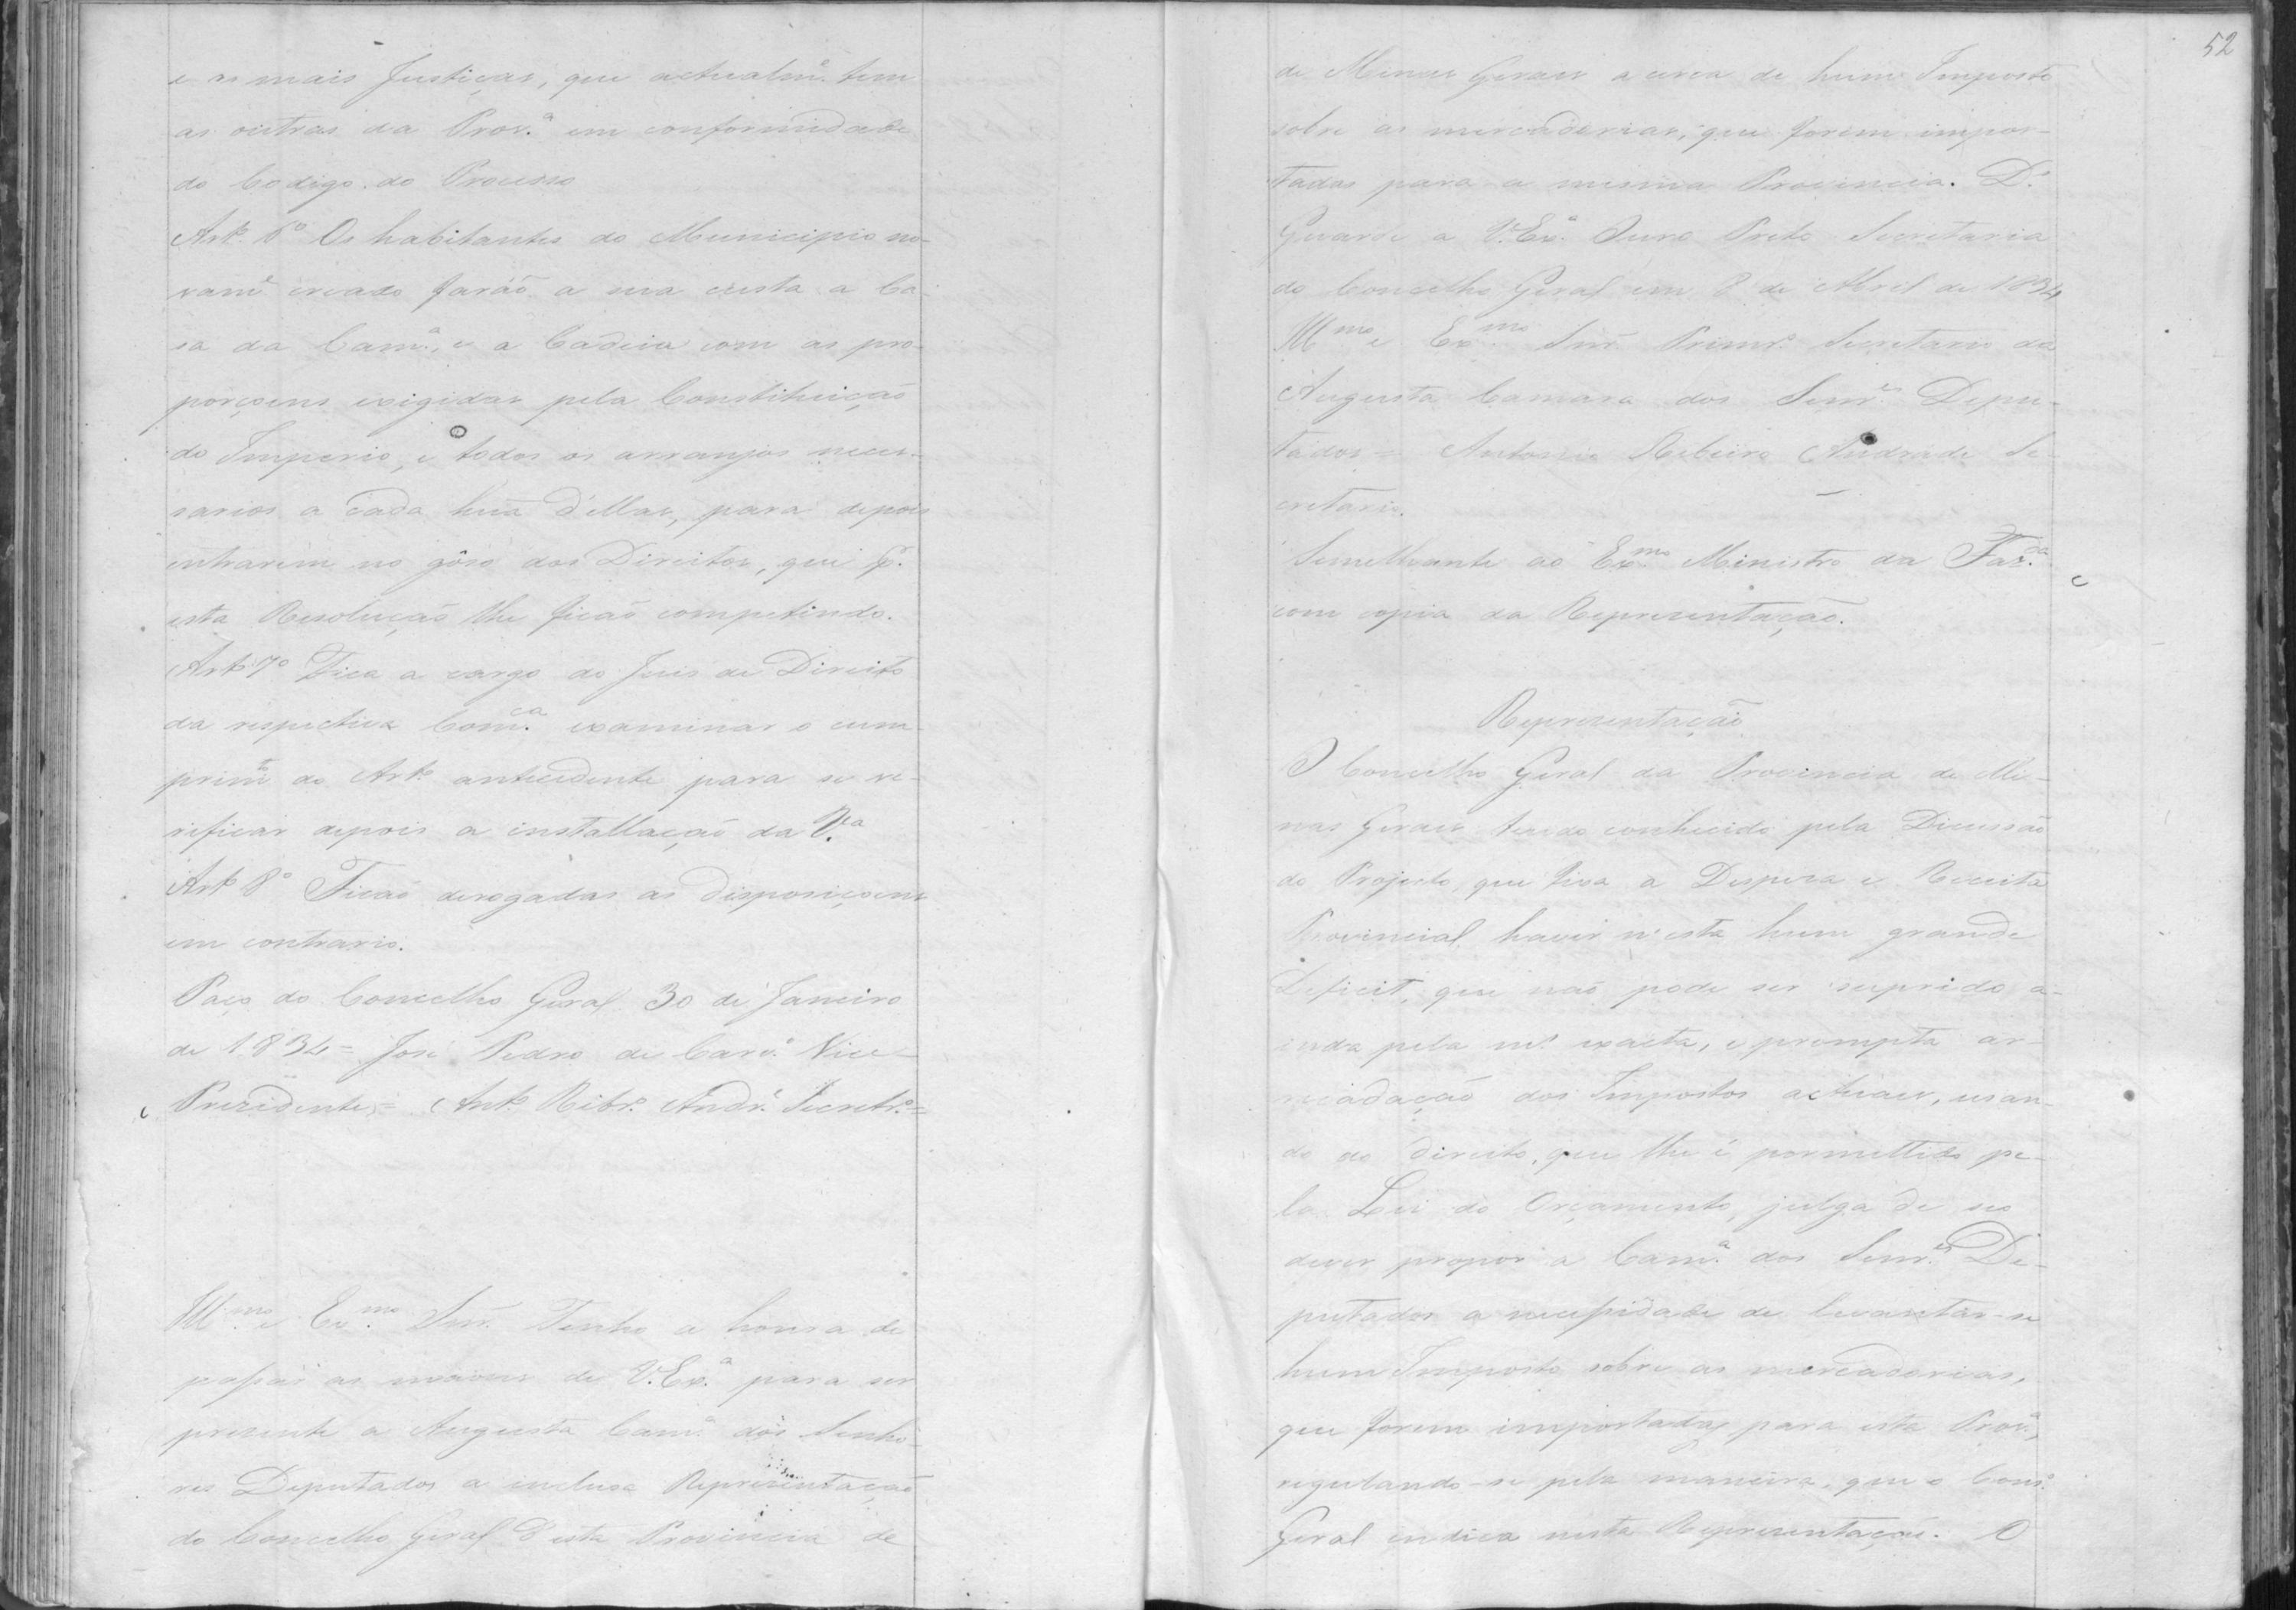 e as mais Justiças, que actualmᵉ tem
as outras da Provª em conformidade
do Codigo do Processo
Artº 6º Os habitantes do Municipio no-
vamᵉ creado farão a sua custa a Ca-
sa da Camª, e a Cadeia com as pro-
porçoens exigidas pela Constituição
do Imperio, e todos os arranjos neces-
sarios a cada huã d'ellas, para depois
entrarem no gôso dos Direitos, que pʳ
esta Resolução lhe ficão competindo.
Artº 7º Fica a cargo do Juis de Direito
da respectiva Comᶜᵃ examinar o cum-
primᵗᵒ do Artº antecedente para se ve-
rificar depois a installação da Vᵃ
Artº 8º Ficão derogadas as disposiçoens
em contrario.
Paço do Concelho Geral 30 de Janeiro
de 1834 = José Pedro de Carvº Vice-
Prezidente = Antº Ribrº Andrᵉ Secretrº =
Illᵐᵒ e Exᵐᵒ Snr. Tenho a honra de
passar as maons de V. Exª para ser
presente a Augusta Camª dos Senho-
res Deputados a inclusa Representação
do Concelho Geral d'esta Provincia de
52
de Minas Geraes a cerca de hum Imposto
sobre as mercadorias, que forem impor-
tadas para a mesma Provincia. Dˢ
Guarde a V. Exª Ouro Preto Secretaria
do Concelho Geral em 8 de Abril de 1834
Illᵐᵒ e Exᵐᵒ Snr Primrº Secretario da
Augusta Camara dos Senrᵉˢ Depu-
tados = Antonio Ribeiro Andrade Se-
cretario.
Semelhante ao Exᵐᵒ Ministro da Fazᵈᵃ
com copia da Representação.
Representação
O Concelho Geral da Provincia de Mi-
nas Geraes tendo conhecido pela Discussão
do Projecto, que fixa a Despeza e Receita
Provincial haver n'esta hum grande
Deficit, que não pode ser suprido a-
inda pela mˢ exacta, e prompta ar-
recadação dos Impostos actuaes, usan-
do do direito, que lhe é permettido pe-
la Lei do Orçamento, julga de seo
dever propor a Camª dos Senrᵉˢ De-
putados a necessidade de levantar-se
hum Imposto sobre as mercadorias,
que forem importadas para esta Provª,
regulando-se pela maneira, que o Consº
Geral indica nesta Representação. O